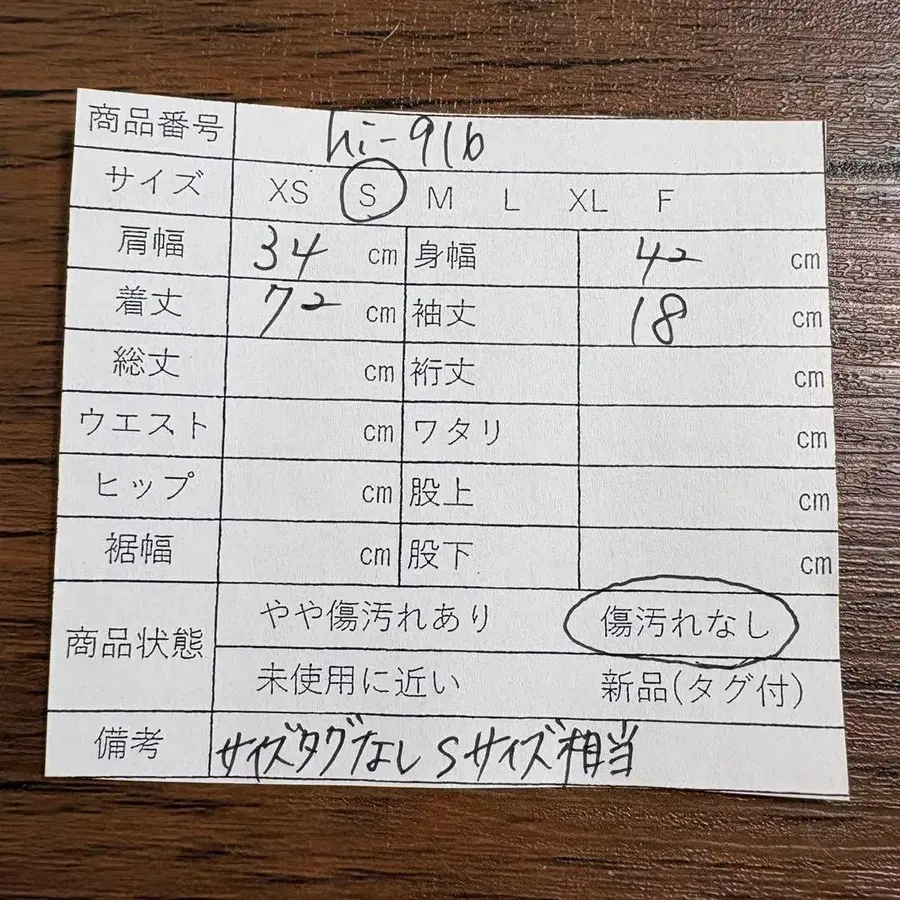 商品番号 hi-916
サイズ XS S M L XL F
肩幅 34 cm 身幅 42 cm
着丈 72 cm 袖丈 18 cm
総丈 cm 裄丈 cm
ウエスト cm ワタリ cm
ヒップ cm 股上 cm
裾幅 cm 股下 cm
商品状態 やや傷汚れあり 傷汚れなし
未使用に近い 新品(タグ付)
備考 サイズタグなし Sサイズ相当